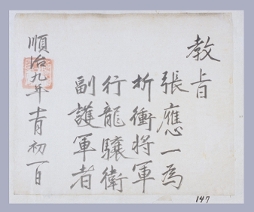 教旨
張應一為
折衝将軍
行龍驤衛
副護軍者
順治九年十一月初一日
147